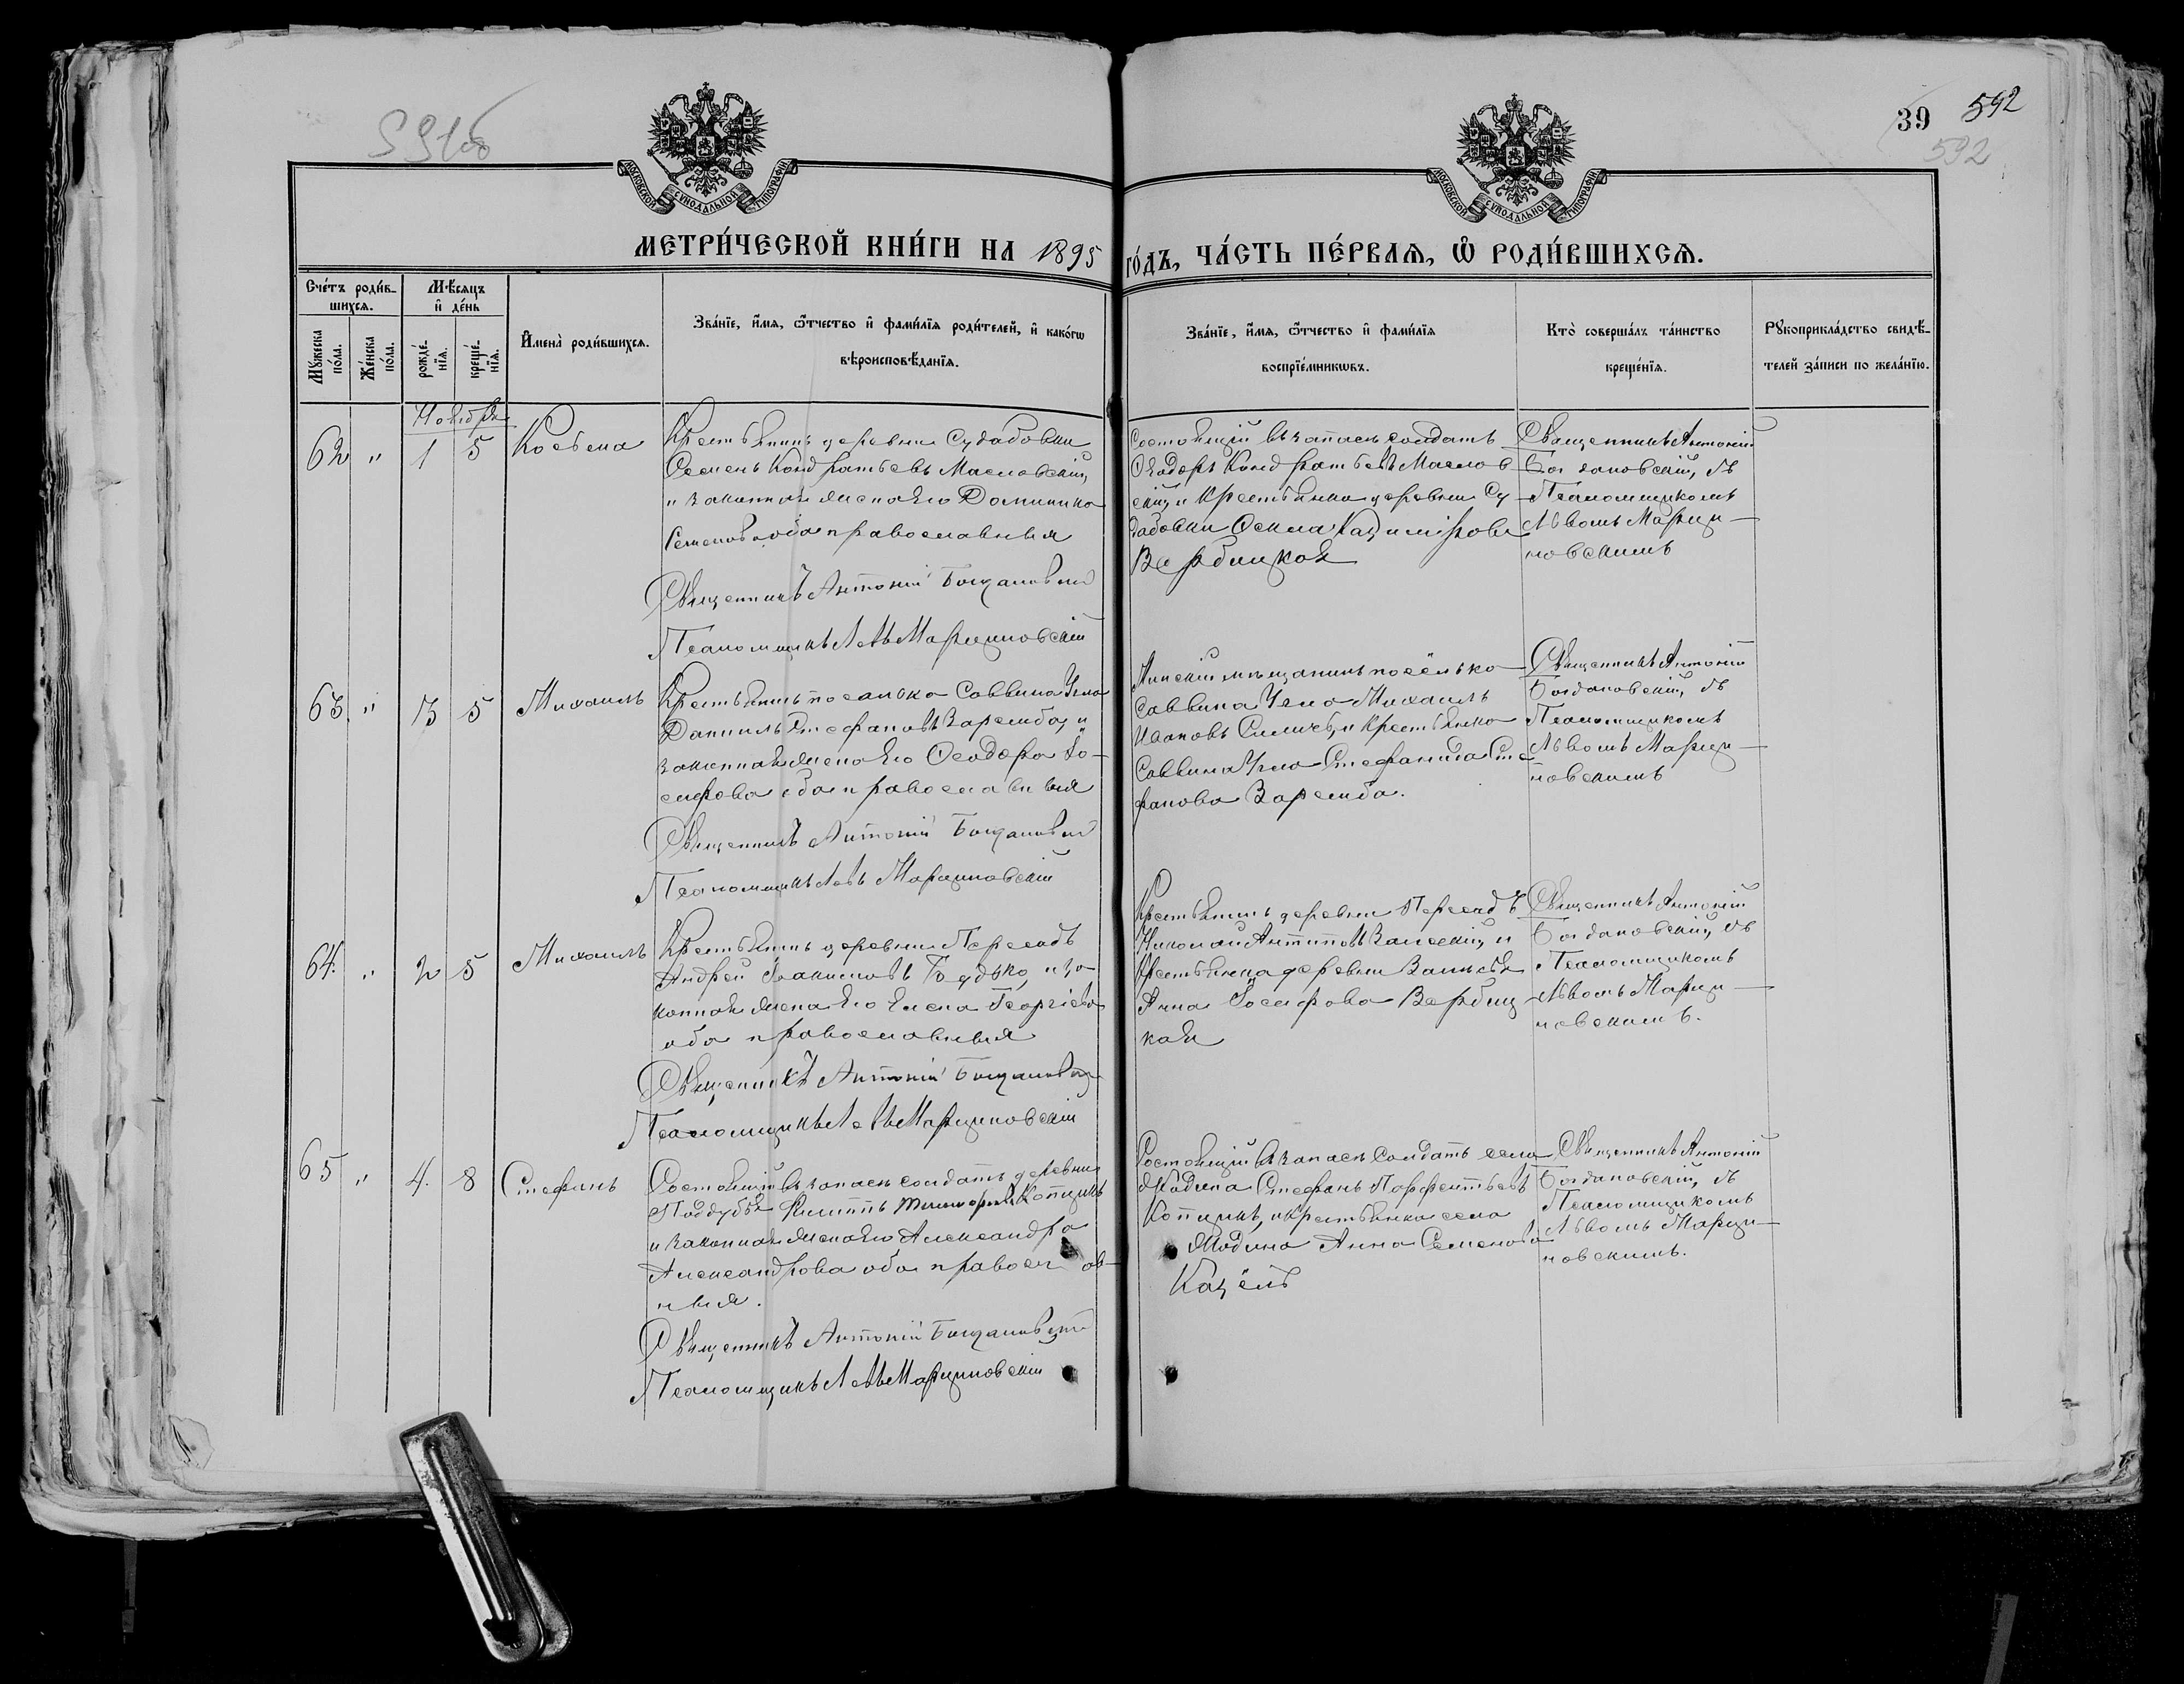 591об
39 592
592
МОСКОВСКОЙ СѴНОДАЛЬНОЙ ТИПОГРАФІИ
МОСКОВСКОЙ СѴНОДАЛЬНОЙ ТИПОГРАФІИ
МЕТРИ́ЧЕСКОЙ КНИ́ГИ НА 1895 ГО́ДЪ, ЧА́СТЬ ПЕ́РВАѦ, Ѡ҆ РОДИ́ВШИХСѦ.
Сче́тъ роди́в-
шихсѧ.
Мꙋ́жеска по́ла.
Же́нска по́ла.
Мѣ́сяцъ
и҆ де́нь
рожде́-
нїѧ.
креще́-
нїѧ.
И҆мена̀ роди́вшихсѧ.
Зва́нїе, и҆́мѧ, ѻ҆́тчество и҆ фами́лїѧ роди́телей, и҆ како́гѡ
вѣроисповѣ́данїѧ.
Зва́нїе, и҆́мѧ, ѻ҆́тчество и҆ фами́лїѧ
воспрїе́мникѡвъ.
Кто̀ соверша́лъ та́инство
креще́нїѧ.
Рꙋкоприкла́дство свидѣ́-
телей за́писи по жела́нїю.
Ноября
62 " 1 5 Косьма
Крестьянинъ деревни Судабовки
Семенъ Кондратьевъ Масловскій,
и законная жена его Доминика
Семенова оба православныя
Священникъ Антоній Богдановскій
Псаломщикъ Левъ Марциновскій
Состоящій въ запасѣ солдатъ
Ѳеодоръ Кондратьевъ Маслов
скій, и крестьянка деревни Су
дабовки Казимірова
Вербицкая
Священникъ Антоній
Богдановскій, съ
Псаломщикомъ
Львомъ Марци-
новскимъ
63 " 3 5 Михаилъ
Крестьянинъ поселка Саввина Угла
Даніилъ Стефановъ Заремба, и
законная жена его Ѳеодора Іо-
сифова оба православныя
Священникъ Антоній Богдановскій
Псаломщикъ Левъ Марциновскій
Минскій мѣщанинъ поселка
Саввина Угла Михаилъ
Ивановъ и крестьянка
Саввина Угла Стефанида Сте
фанова Заремба.
Священникъ Антоній
Богдановскій, съ
Псаломщикомъ
Львомъ Марци-
новскимъ
64. " 2 5 Михаилъ
Крестьянинъ деревни Пересадъ
Андрей Іоакимовъ Будько, и за-
конная жена его Елена Георгіева
оба православныя
Священникъ Антоній Богдановскій
Псаломщикъ Левъ Марциновскій
Крестьянинъ деревни Пересадъ
Николай Антиповъ и
крестьянка деревни
Анна Іосифова Вербиц-
кая
Священникъ Антоній
Богдановскій, съ
Псаломщикомъ
Львомъ Марци-
новскимъ.
65 " 4. 8 Стефанъ
Состоящій въ запасѣ солдатъ деревни
Поддубья Филиппъ Копицкъ
и законная жена его Александра
Александрова оба правосл ав-
ныя.
Священникъ Антоній Богдановскій
Псаломщикъ Левъ Марциновскій
Состоящій въ запасѣ солдатъ села
Жодина Стефанъ Парфентьевъ
Копицкъ, и крестьянка села
Жодина Анна Семенова
Кацёлъ
Священникъ Антоній
Богдановскій, съ
Псаломщикомъ
Львомъ Марци-
новскимъ.